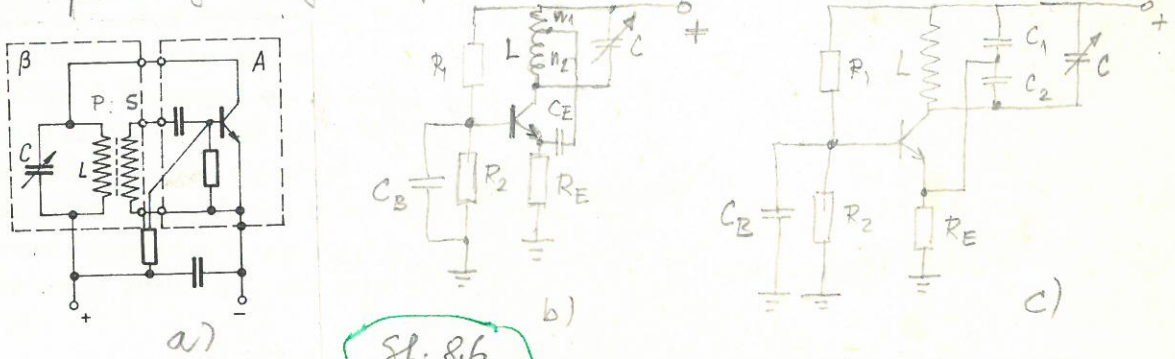 β A
P: S
C L
+ -
a)
R1 L n1 n2 C +
CE
CB R2 RE
b)
R1 L C1 C2 C +
CB R2 RE
c)
Sl. 8.6